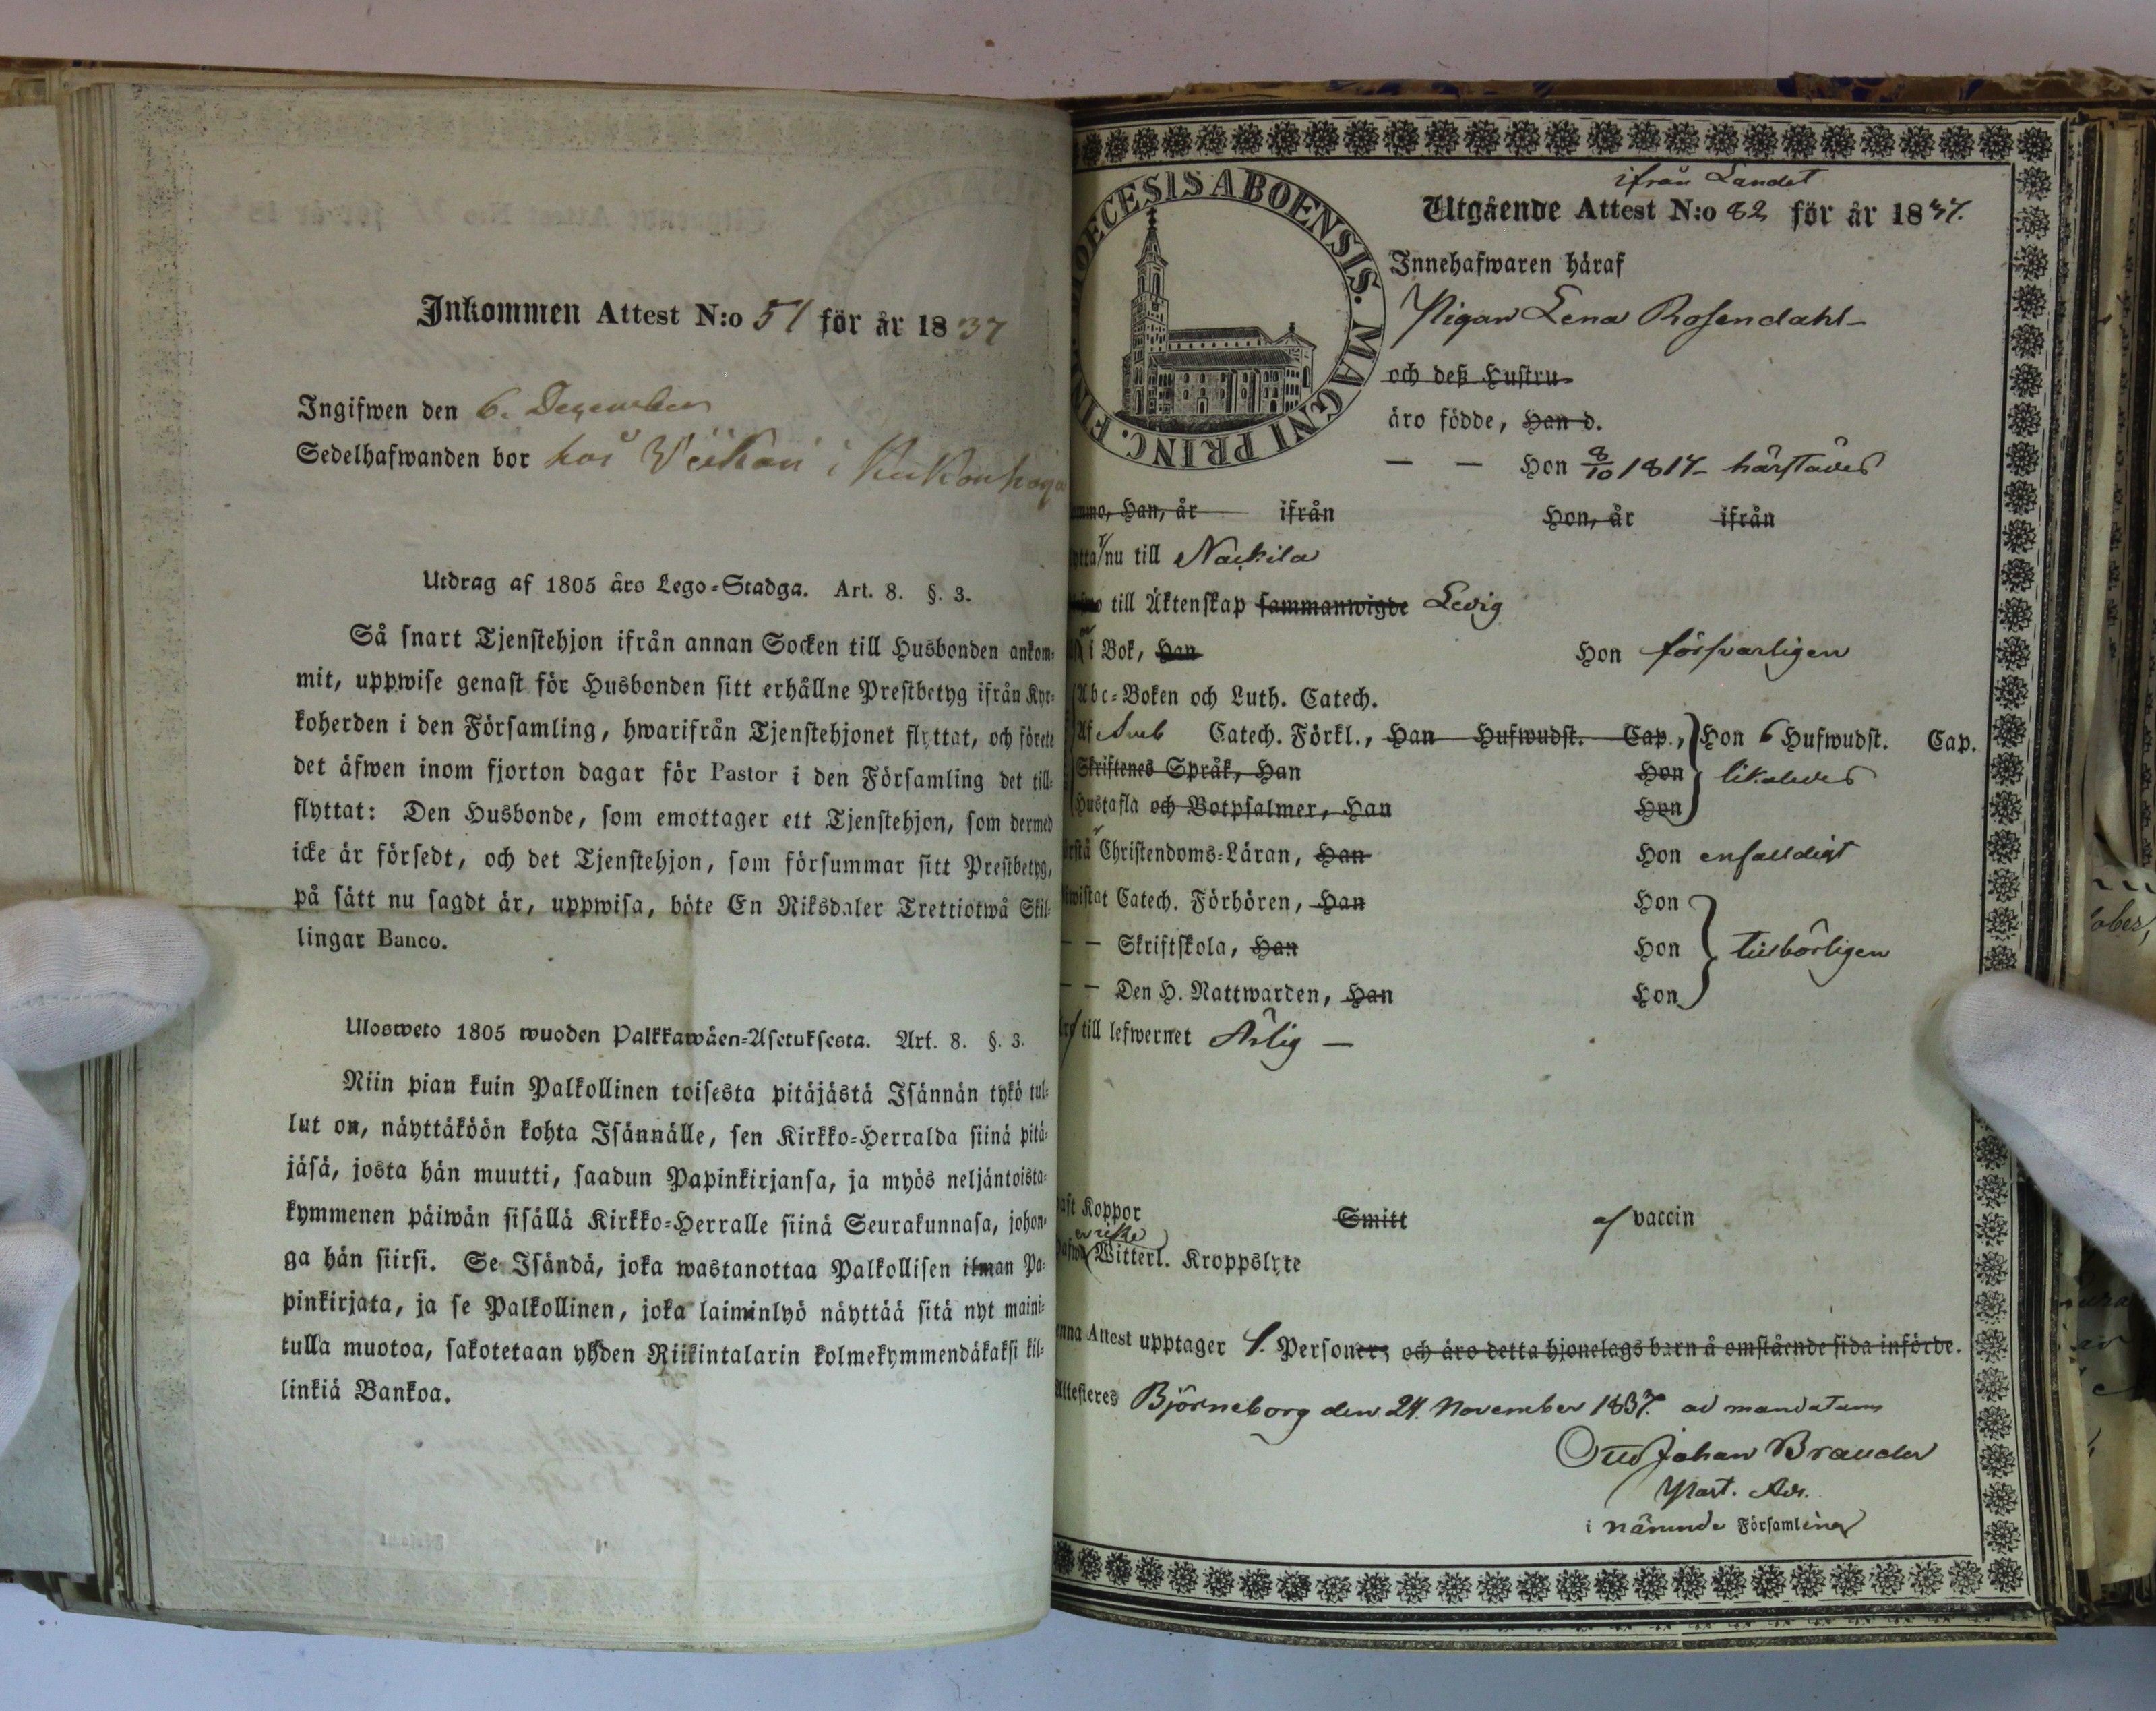 Inkommen Attest N:o 51 för år 1837
Ingifwen den 6. December
Sedelhafwanden bor hos i
Utdrag af 1805 års Lego-Stadga. Art. 8. §. 3.
Så snart Tjenstehjon ifrån annan Socken till Husbonden ankom-
mit, uppwise genast för Husbonden sitt erhållne Prestbetyg ifrån Kyr-
koherden i den Församling, hwarifrån Tjenstehjonet flyttat, och förete
det äfwen inom fjorton dagar för Pastor i den Församling det till-
flyttat: Den Husbonde, som emottager ett Tjenstehjon, som dermed
icke är försedt, och det Tjenstehjon, som försummar sitt Prestbetyg,
på sätt nu sagdt är, uppwisa, böte En Riksdaler Trettiotwå Skil-
lingar Banco.
Ulosweto 1805 wuoden Palkkawäen-Asetuksesta. Art. 8. §. 3.
Niin pian kuin Palkollinen toisesta pitäjästä Isännän tykö tul-
lut on, näyttäköön kohta Isännälle, sen Kirkko-Herralda siinä pitä-
jäsä, josta hän muutti, saadun Papinkirjansa, ja myös neljäntoista-
kymmenen päiwän sisällä Kirkko-Herralle siinä Seurakunnasa, johon-
ga hän siirsi. Se Isändä, joka wastanottaa Palkollisen ilman Pa-
pinkirjata, ja se Palkollinen, joka laiminlyö näyttää sitä nyt maini-
tulla muotoa, sakotetaan yhden Riikintalarin kolmekymmendäkaksi kil-
linkiä Bankoa.
DIOECESIS ABOENSIS. MAGNI PRINC. FINL.
ifrån Landet
Utgående Attest N:o 82 för år 1837.
Innehafwaren häraf
Pigan Lena Rosendahl
och deß Hustru
äro födde, Han d.
— — Hon 8/10 1817 härstädes
Han, år ifrån Hon, år ifrån
nu till Nackila
till Äktenskap sammanwigde Ledig
i Bok, Han Hon försvarligen
Abc-Boken och Luth. Catech.
Af Sveb Catech. Förkl., Han Hufwudst. Cap., Hon 6 Hufwudst. Cap.
Skriftenes Språk, Han Hon likaledes
Hustafla och Botpsalmer, Han Hon
Christendoms-Läran, Han Hon enfaldigt
Catech. Förhören, Han Hon
— — Skriftskola, Han Hon tillbörligen
— — Den H. Nattwarden, Han Hon
till lefwernet Ärlig —
Koppor Smitt af vaccin
icke
Witterl. Kroppslyte
Attest upptager 1. Personer, och äro detta hjonelags barn å omstående sida införde.
Attesteres Björneborg den 24. November 1837. ad mandatum
Johan Brander
Past. Adj.
i nämnde Församling